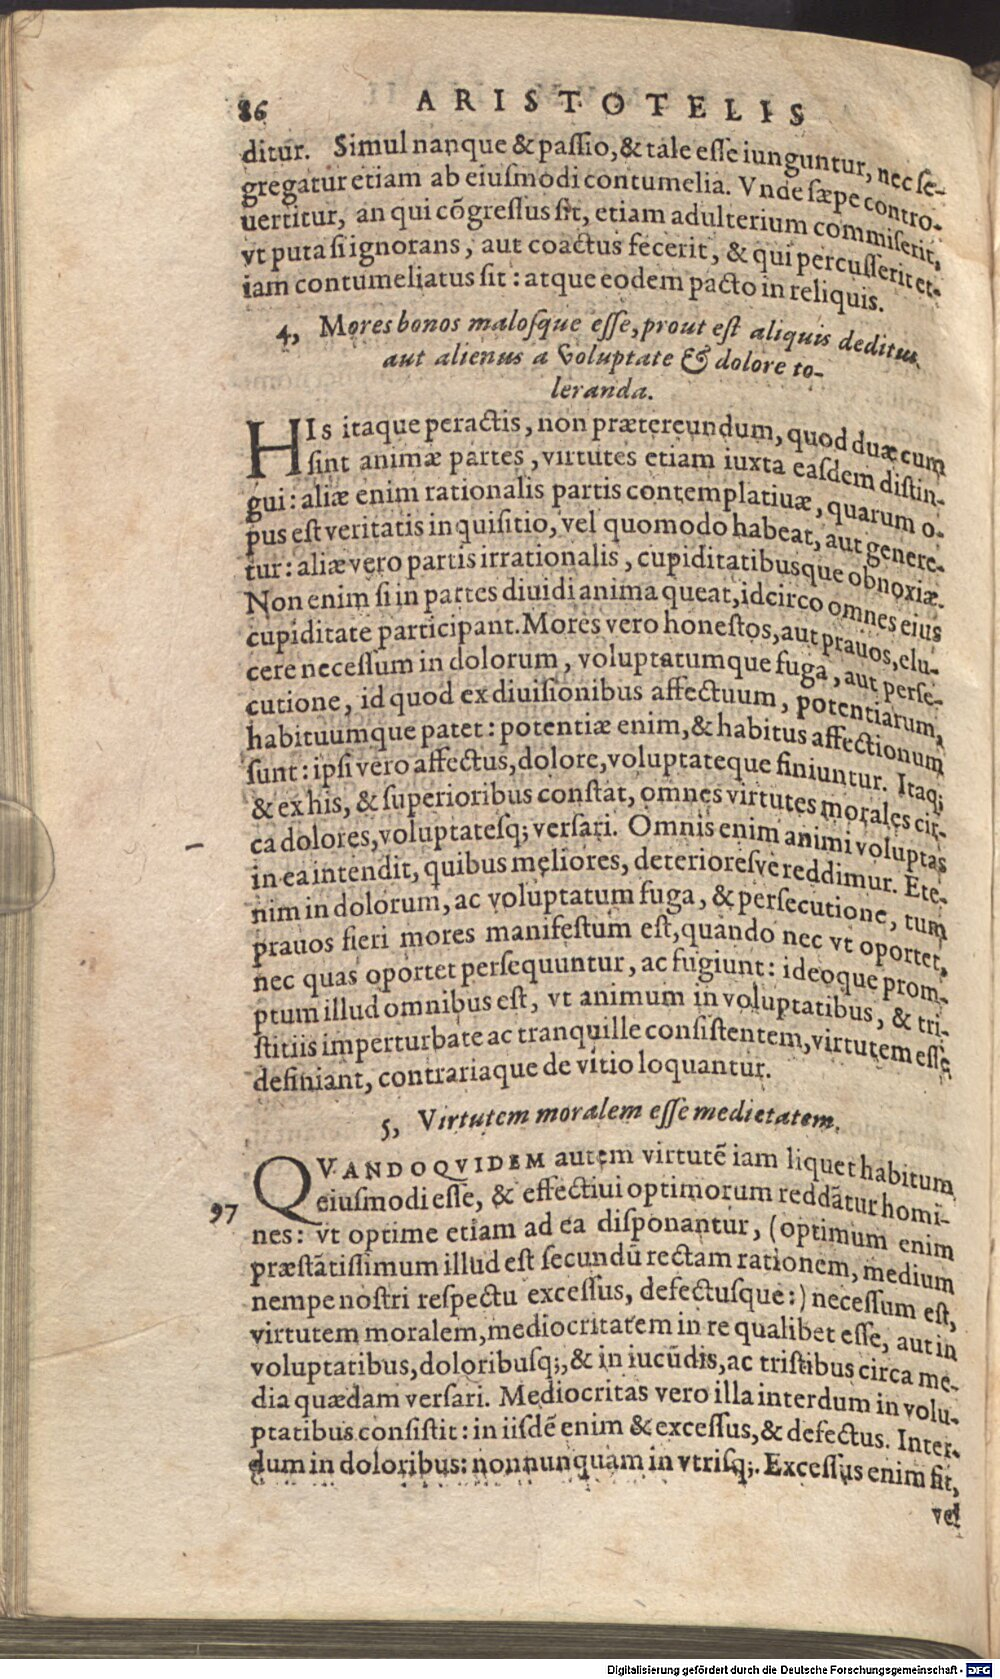 86 ARISTOTELIS
ditur. Simul nanque & passio, & tale esse iunguntur, nec se-
gregatur etiam ab eiusmodi contumelia. Vnde sæpe contro-
uertitur, an qui cõgressus sit, etiam adulterium commiserit,
vt puta si ignorans, aut coactus fecerit, & qui percusserit et-
iam contumeliatus sit: atque eodem pacto in reliquis.
4, Mores bonos malosque esse, prout est aliquis deditus
aut alienus a voluptate & dolore to-
leranda.
HIs itaque peractis, non prætereundum, quod duæ cum
sint animæ partes, virtutes etiam iuxta easdem distin-
gui: aliæ enim rationalis partis contemplatiuæ, quarum o-
pus est veritatis inquisitio, vel quomodo habeat, aut genere-
tur: aliæ vero partis irrationalis, cupiditatibusque obnoxiæ.
Non enim si in partes diuidi anima queat, idcirco omnes eius
cupiditate participant. Mores vero honestos, aut prauos, elu-
cere necessum in dolorum, voluptatumque fuga, aut perse-
cutione, id quod ex diuisionibus affectuum, potentiarum,
habituumque patet: potentiæ enim, & habitus affectionum
sunt: ipsi vero affectus, dolore, voluptateque finiuntur. Itaq;
& ex his, & superioribus constat, omnes virtutes morales cir-
ca dolores, voluptatesq; versari. Omnis enim animi voluptas
in ea intendit, quibus meliores, deterioresve reddimur. Ete-
nim in dolorum, ac voluptatum fuga, & persecutione, tum
prauos fieri mores manifestum est, quando nec vt oportet,
nec quas oportet persequuntur, ac fugiunt: ideoque prom-
ptum illud omnibus est, vt animum in voluptatibus, & tri-
stitiis imperturbate ac tranquille consistentem, virtutem esse
definiant, contrariaque de vitio loquantur.
5, Virtutem moralem esse medietatem.
QVANDOQVIDEM autem virtutẽ iam liquet habitum
97 eiusmodi esse, & effectiui optimorum reddãtur homi-
nes: vt optime etiam ad ea disponantur, (optimum enim
præstãtissimum illud est secundũ rectam rationem, medium
nempe nostri respectu excessus, defectusque:) necessum est,
virtutem moralem, mediocritatem in re qualibet esse, aut in
voluptatibus, doloribusq;, & in iucũdis, ac tristibus circa me-
dia quædam versari. Mediocritas vero illa interdum in volu-
ptatibus consistit: in iisdẽ enim & excessus, & defectus. Inter-
dum in doloribus: nonnunquam in vtrisq;. Excessus enim sit,
vel
Digitalisierung gefördert durch die Deutsche Forschungsgemeinschaft - DFG